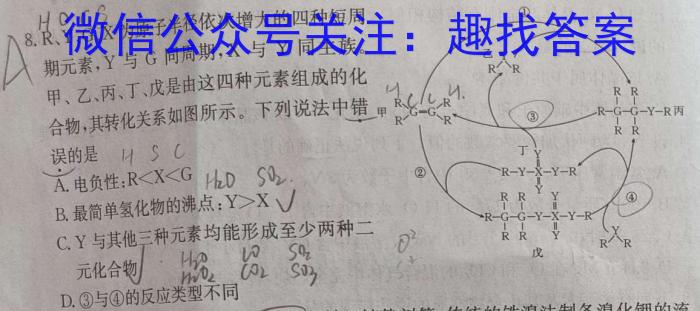 微信公众号关注：趣找答案
8.R、Y 半径依次增大的四种短周
期元素,Y 与 G 同周期,X 与 Y 同主族。
甲、乙、丙、丁、戊是由这四种元素组成的化
合物,其转化关系如图所示。下列说法中错
误的是 H S C
A.电负性:R<X<G H₂O SO₂
B.最简单氢化物的沸点:Y>X
C.Y 与其他三种元素均能形成至少两种二
元化合物 H₂O CO SO₂
H₂O₂ CO₂ SO₃
D.③与④的反应类型不同
A
①
R R
甲 R R G=G R R
C C
②
③
R R
R-G-G-Y-R 丙
R R
丁 Y
R-Y-X-Y-R
Y
R R Y
R-G-G-Y-X-Y-R
R R Y
戊
④
Y
R R